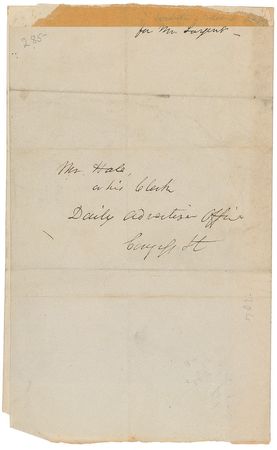 285-
for Mr Sargent -
Mr. Hale,
or his Clerk
Daily Advertiser Office
Congress St